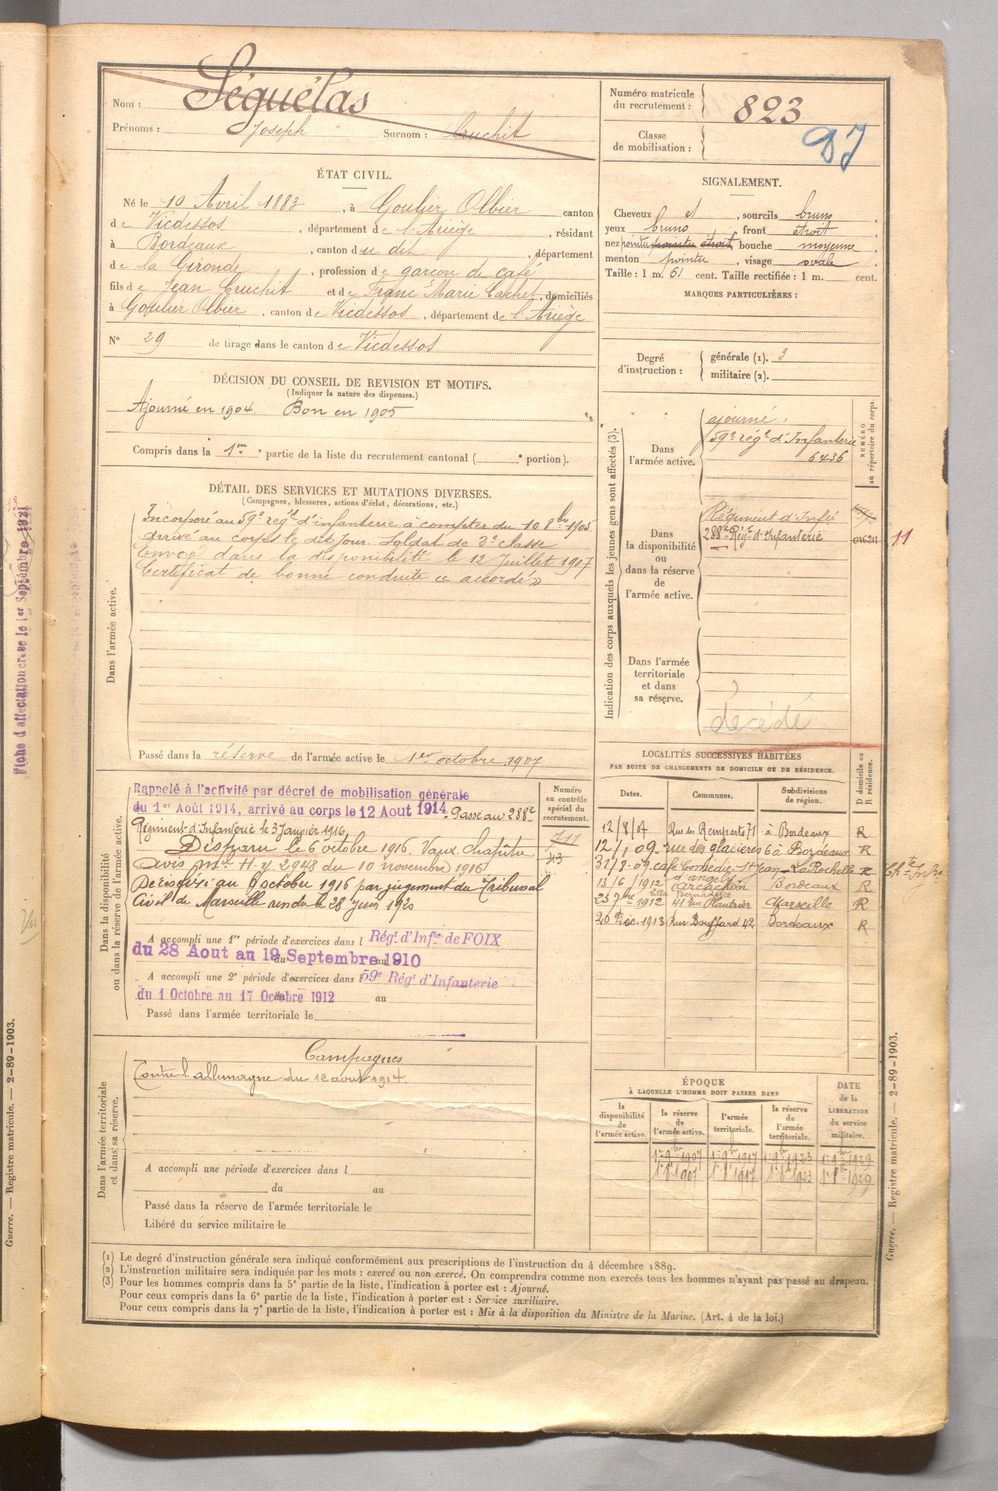 Nom : Séguélas
Prénoms : Joseph Surnom : Cruchit
Numéro matricule du recrutement : 823
Classe de mobilisation :
ÉTAT CIVIL.
Né le 10 Avril 1883, à Goulier Olbier canton
de Vicdessos, département de l'Ariège, résidant
à Bordeaux, canton du dit, département
de la Gironde, profession de garçon de café
fils de Jean Cruchit et de Franc Marie Cachet, domiciliés
à Goulier Olbier, canton de Vicdessos, département de l'Ariège
N° 29 de tirage dans le canton de Vicdessos
SIGNALEMENT.
Cheveux et, sourcils bruns,
yeux bruns front étroit,
nez pointu bouche moyenne,
menton pointu, visage ovale
Taille : 1 m. 61 cent. Taille rectifiée : 1 m. cent.
MARQUES PARTICULIÈRES :
Degré d'instruction : générale (1). 3
militaire (2).
DÉCISION DU CONSEIL DE REVISION ET MOTIFS.
(Indiquer la nature des dispenses.)
Ajourné en 1904. Bon en 1905
Compris dans la 1re partie de la liste du recrutement cantonal ( e portion).
DÉTAIL DES SERVICES ET MUTATIONS DIVERSES.
(Campagnes, blessures, actions d'éclat, décorations, etc.)
Dans l'armée active.
Incorporé au 59e régt d'infanterie à compter du 10 8bre 1905
arrivé au corps le dit jour. Soldat de 2e classe
Envoyé dans la disponibilité le 12 Juillet 1907
Certificat de bonne conduite « accordé »
Passé dans la réserve de l'armée active le 1er octobre 1907
Indication des corps auxquels les jeunes gens sont affectés (3).
NUMÉRO au répertoire du corps.
Dans l'armée active.
ajourné.
59e régt d'Infanterie
6436
Dans la disponibilité ou dans la réserve de l'armée active.
Régiment d'Infie
288e Régt d'Infanterie
11
Dans l'armée territoriale et dans sa réserve.
décédé
Dans la disponibilité ou dans la réserve de l'armée active.
Numéro au contrôle spécial du recrutement.
Rappelé à l'activité par décret de mobilisation générale
du 1er Août 1914, arrivé au corps le 12 Aout 1914. Passé au 288e
Régiment d'Infanterie le 3 Janvier 1916,
Disparu le 6 octobre 1916. Vaux chapitre
Avis mel H. y. 2948 du 10 novembre 1916
Décès fixé au 6 octobre 1916 par jugement du Tribunal
Civil de Marseille rendu le 28 Juin 1920
A accompli une 1re période d'exercices dans l Régt d'Infie de FOIX
du 28 Aout au 19 Septembre 1910
A accompli une 2e période d'exercices dans l 59e Régt d'Infanterie
du 1 Octobre au 17 Octobre 1912 au
Passé dans l'armée territoriale le
LOCALITÉS SUCCESSIVES HABITÉES
PAR SUITE DE CHANGEMENTS DE DOMICILE OU DE RÉSIDENCE.
Dates. Communes. Subdivisions de région. D domicile ou R résidence.
12/8/07 Rue des Remparts 71 à Bordeaux R
12/1/09 rue des glacières 6 à Bordeaux R
café Comédie St Jean d'angely La Rochelle R
13/6/1912 arcachon Bordeaux R
23 9bre 1912 Marseille R
20 Déc. 1913 Rue Bouffard 42 Bordeaux R
Dans l'armée territoriale et dans sa réserve.
Campagnes
Contre l'allemagne du 12 aout 1914
A accompli une période d'exercices dans l
du au
Passé dans la réserve de l'armée territoriale le
Libéré du service militaire le
ÉPOQUE
À LAQUELLE L'HOMME DOIT PASSER DANS
la disponibilité de l'armée active.
la réserve de l'armée active.
l'armée territoriale.
la réserve de l'armée territoriale.
DATE de la LIBÉRATION du service militaire.
(1) Le degré d'instruction générale sera indiqué conformément aux prescriptions de l'instruction du 4 décembre 1889.
(2) L'instruction militaire sera indiquée par les mots : exercé ou non exercé. On comprendra comme non exercés tous les hommes n'ayant pas passé au drapeau.
(3) Pour les hommes compris dans la 5e partie de la liste, l'indication à porter est : Ajourné.
Pour ceux compris dans la 6e partie de la liste, l'indication à porter est : Service auxiliaire.
Pour ceux compris dans la 7e partie de la liste, l'indication à porter est : Mis à la disposition du Ministre de la Marine. (Art. 4 de la loi.)
Guerre. — Registre matricule. — 2-89-1903.
Guerre. — Registre matricule. — 2-89-1903.
Fiche d'affectation créée le 1er Septembre 1921